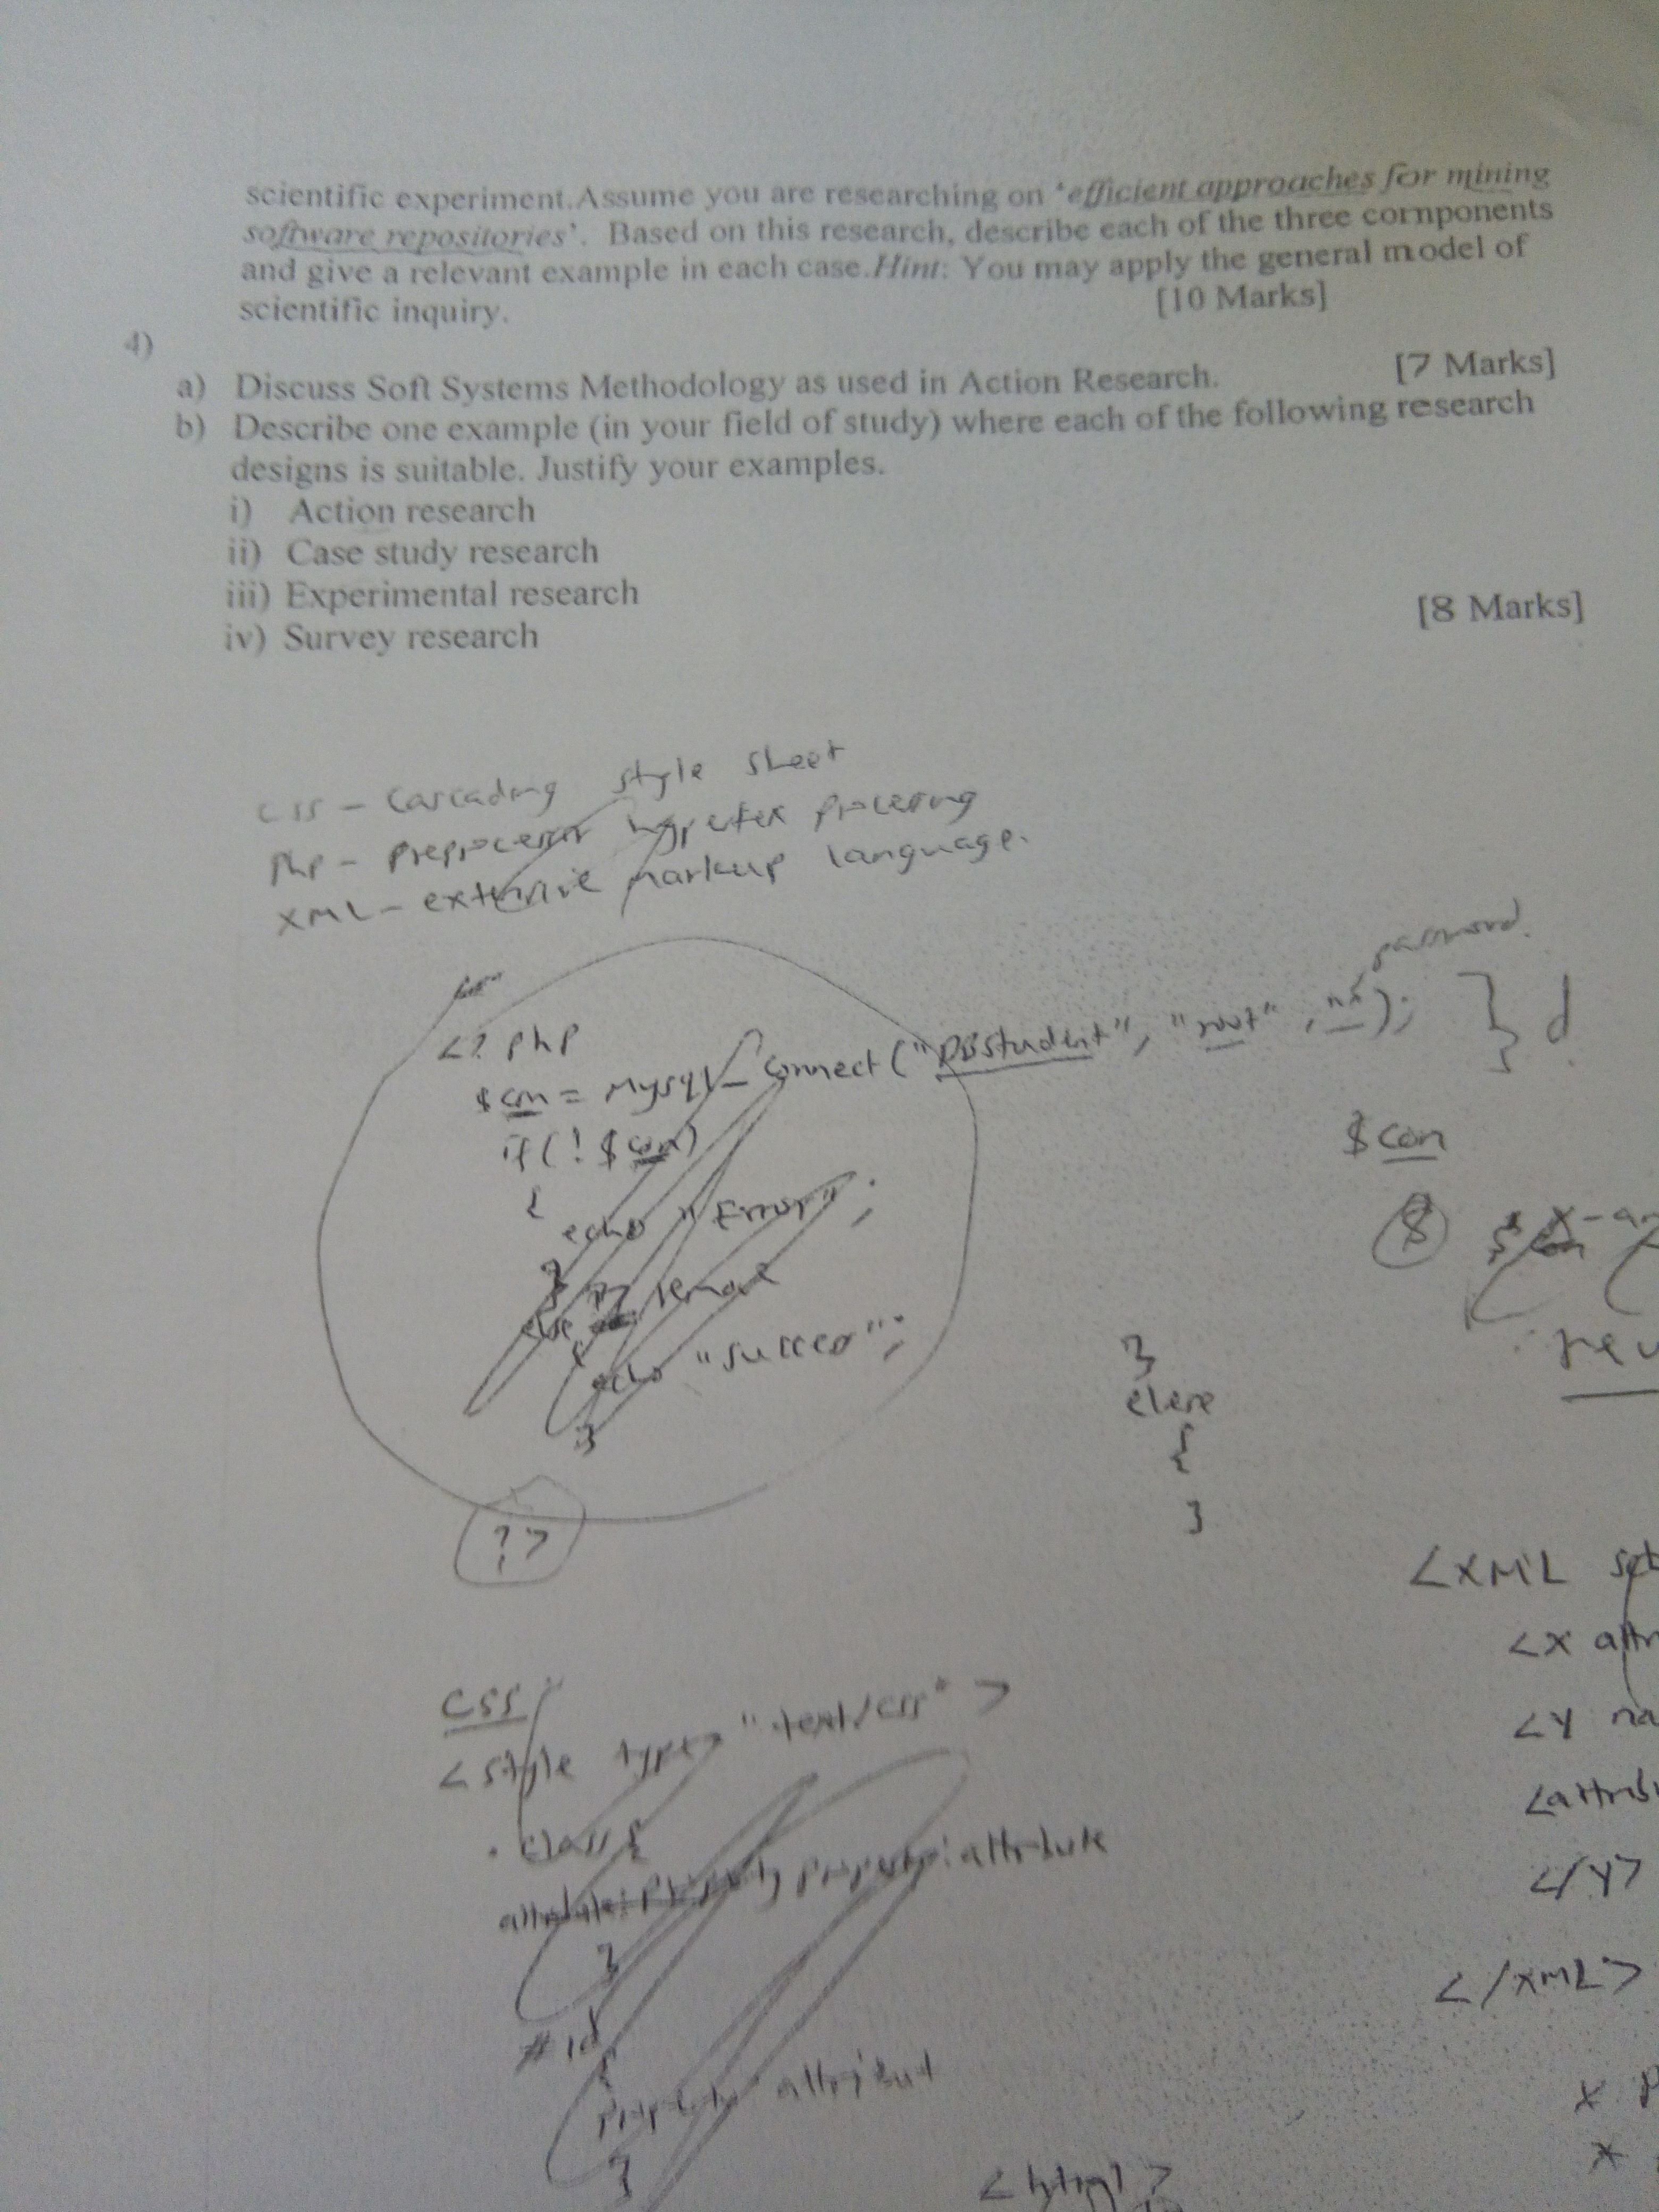 scientific experiment.Assume you are researching on 'efficient approaches for mining
software repositories'. Based on this research, describe each of the three components
and give a relevant example in each case.Hint: You may apply the general model of
scientific inquiry. [10 Marks]
4)
a) Discuss Soft Systems Methodology as used in Action Research. [7 Marks]
b) Describe one example (in your field of study) where each of the following research
designs is suitable. Justify your examples.
i) Action research
ii) Case study research
iii) Experimental research
iv) Survey research [8 Marks]
css - Cascading style sheet
php - preprocessor hypertex processing
XML - extensive markup language.
password.
<? php
$con = Mysql_connect("DBStudent", "root", ""); } d
if(! $con)
{
echo "Error";
}
else
{
echo "success";
}
?>
$con
$
}
else
{
}
<XML
<X attr
<Y na
<attrib
</Y>
</XML>
css
<style type= "text/css" >
.class{
attribute: property property: attribute
}
#id
{
property: attribut
}
<html>